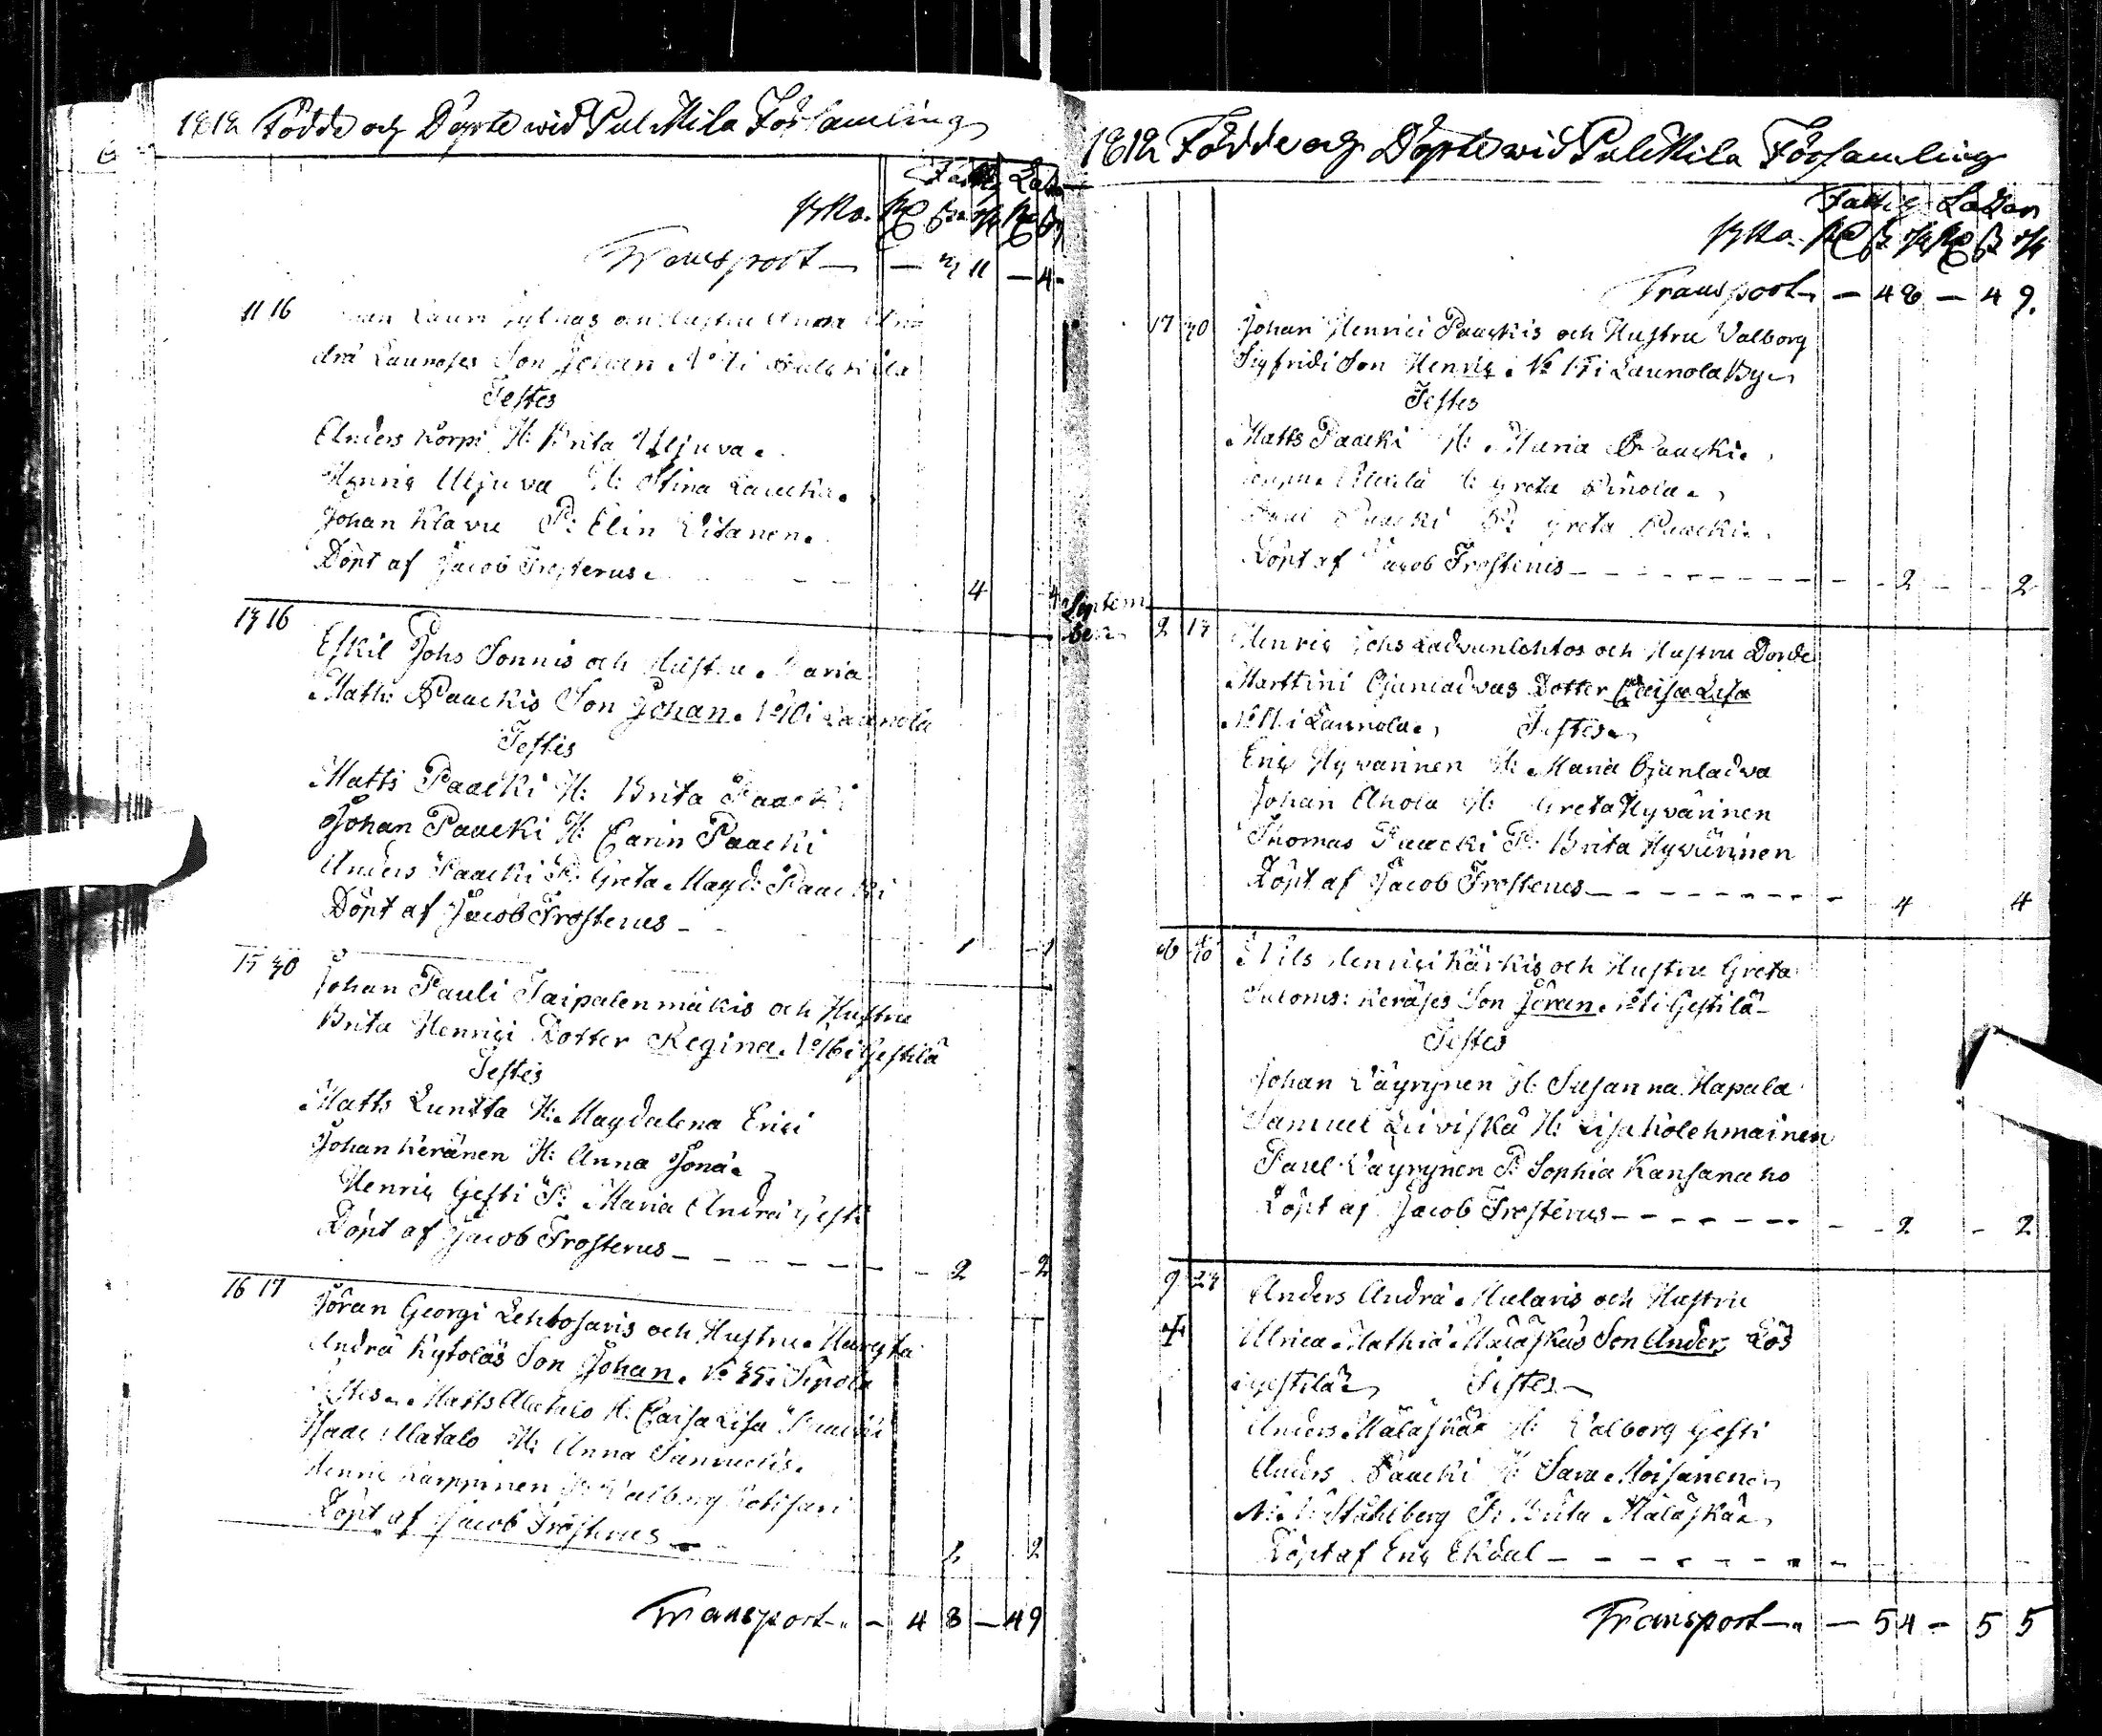 1812 Födde och Döpte wid Pulkkila Församling
Fattig Ladan
Transport — 11 — 4
11 16 Hustru Anna
drä Son Johan N:o i Pulckila
Testes
Anders Korpi H: Brita Uljuva.
Henric Uljuva H: Stina
Johan Klavu P: Elin Vitanen.
Döpt af Jacob Frosterus. 4 4
13 16 Eskil Johs Sonnis och Hustru Maria
Math: Paackis Son Johan. N:o 10 i Launola
Testes
Matts Paacki H: Brita Paacki
Johan Paacki H: Carin Paacki
Anders Paacki P: Greta Magd: Paacki
Döpt af Jacob Frosterus — 1 - 1
15 30 Johan Pauli Taipalenmäkis och Hustru
Brita Henrici Dotter Regina. N:o 16 i Gestilä
Testes
Matts Luntta H: Magdalena Erici
Johan Keränen H: Anna Jonæ
Henric Gesti P: Maria Andræ Gesti
Döpt af Jacob Frosterus — — — — — - 2 - 2
16 17 Jöran Georgi Lehtosaris och Hustru Margeta
Andræ Kytöläs Son Johan. N:o 35 i Sipola
Testes. Matts Alatalo H: Caisa Lisa
Isaac Alatalo H: Anna
Henric Karppinen P: Valborg
Döpt af Jacob Frosterus — 2 2
Transport — — 4 8 — 49
1812 Födde och Döpte wid Pulkkila Församling
Fattig Ladan
Transport — 48 — 4 9.
17 30 Johan Henrici Paackis och Hustru Valborg
Sigfridi Son Henric. N:o 15 i Launola By
Testes
Matts Paacki H: Maria Paacki.
H: Greta
Paul Paacki P: Greta Paacki.
Döpt af Jacob Frosterus — — — — — — — — 2 — 2
Septem
ber 2 13 Henric Johs Ladvanlehtos och Hustru Dorde
Marttini Ojanladvas Dotter Caisa Lisa
N:o 11 i Launola. Testes.
Eric Hyvärinen H: Maria Ojanladva
Johan Ahola H: Greta Hyvärinen
Thomas Paacki P: Brita Hyvärinen
Döpt af Jacob Frosterus — — — — — — — — 4 4
6 Nils Henrici Kärkis och Hustru Greta
Saloms: Keräjes Son Jöran. N:o 1 i Gestilä
Testes
Johan Väyrynen H: Susanna Hapala
Samuel Leiviskä H: Lisa Kolehmainen
Paul Väyrynen P: Sophia Kansanaho
Döpt af Jacob Frosterus — — — — — — — - 2 - 2
9 24 Anders Andræ Mularis och Hustru
Ulrica Mathiæ Mäläskäs Son Anders Lös
i Gestilä Testes
Anders Mäläskä H: Valborg Gesti
Anders Paacki H: Sara Moisanen
Ståhlberg P: Brita Mäläskä
Döpt af Eric Ekdal — — — — — — — —
Transport — — 54 — 5 5